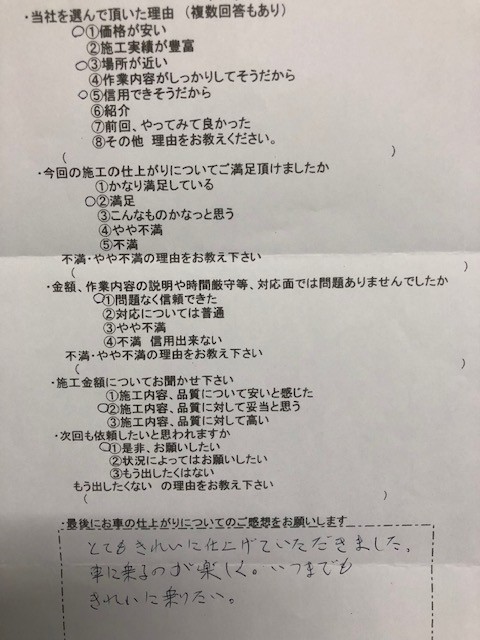 ・当社を選んで頂いた理由 （複数回答もあり）
○①価格が安い
②施工実績が豊富
○③場所が近い
④作業内容がしっかりしてそうだから
○⑤信用できそうだから
⑥紹介
⑦前回、やってみて良かった
⑧その他 理由をお教えください。
( )
・今回の施工の仕上がりについてご満足頂けましたか
①かなり満足している
○②満足
③こんなものかなっと思う
④やや不満
⑤不満
不満・やや不満の理由をお教え下さい
( )
・金額、作業内容の説明や時間厳守等、対応面では問題ありませんでしたか
○①問題なく信頼できた
②対応については普通
③やや不満
④不満 信用出来ない
不満・やや不満の理由をお教え下さい
( )
・施工金額についてお聞かせ下さい
①施工内容、品質について安いと感じた
○②施工内容、品質に対して妥当と思う
③施工内容、品質に対して高い
・次回も依頼したいと思われますか
○①是非、お願いしたい
②状況によってはお願いしたい
③もう出したくはない
もう出したくない の理由をお教え下さい
( )
・最後にお車の仕上がりについてのご感想をお願いします
とてもきれいに仕上げていただきました。
車に乗るのが楽しく。いつまでも
きれいに乗りたい。